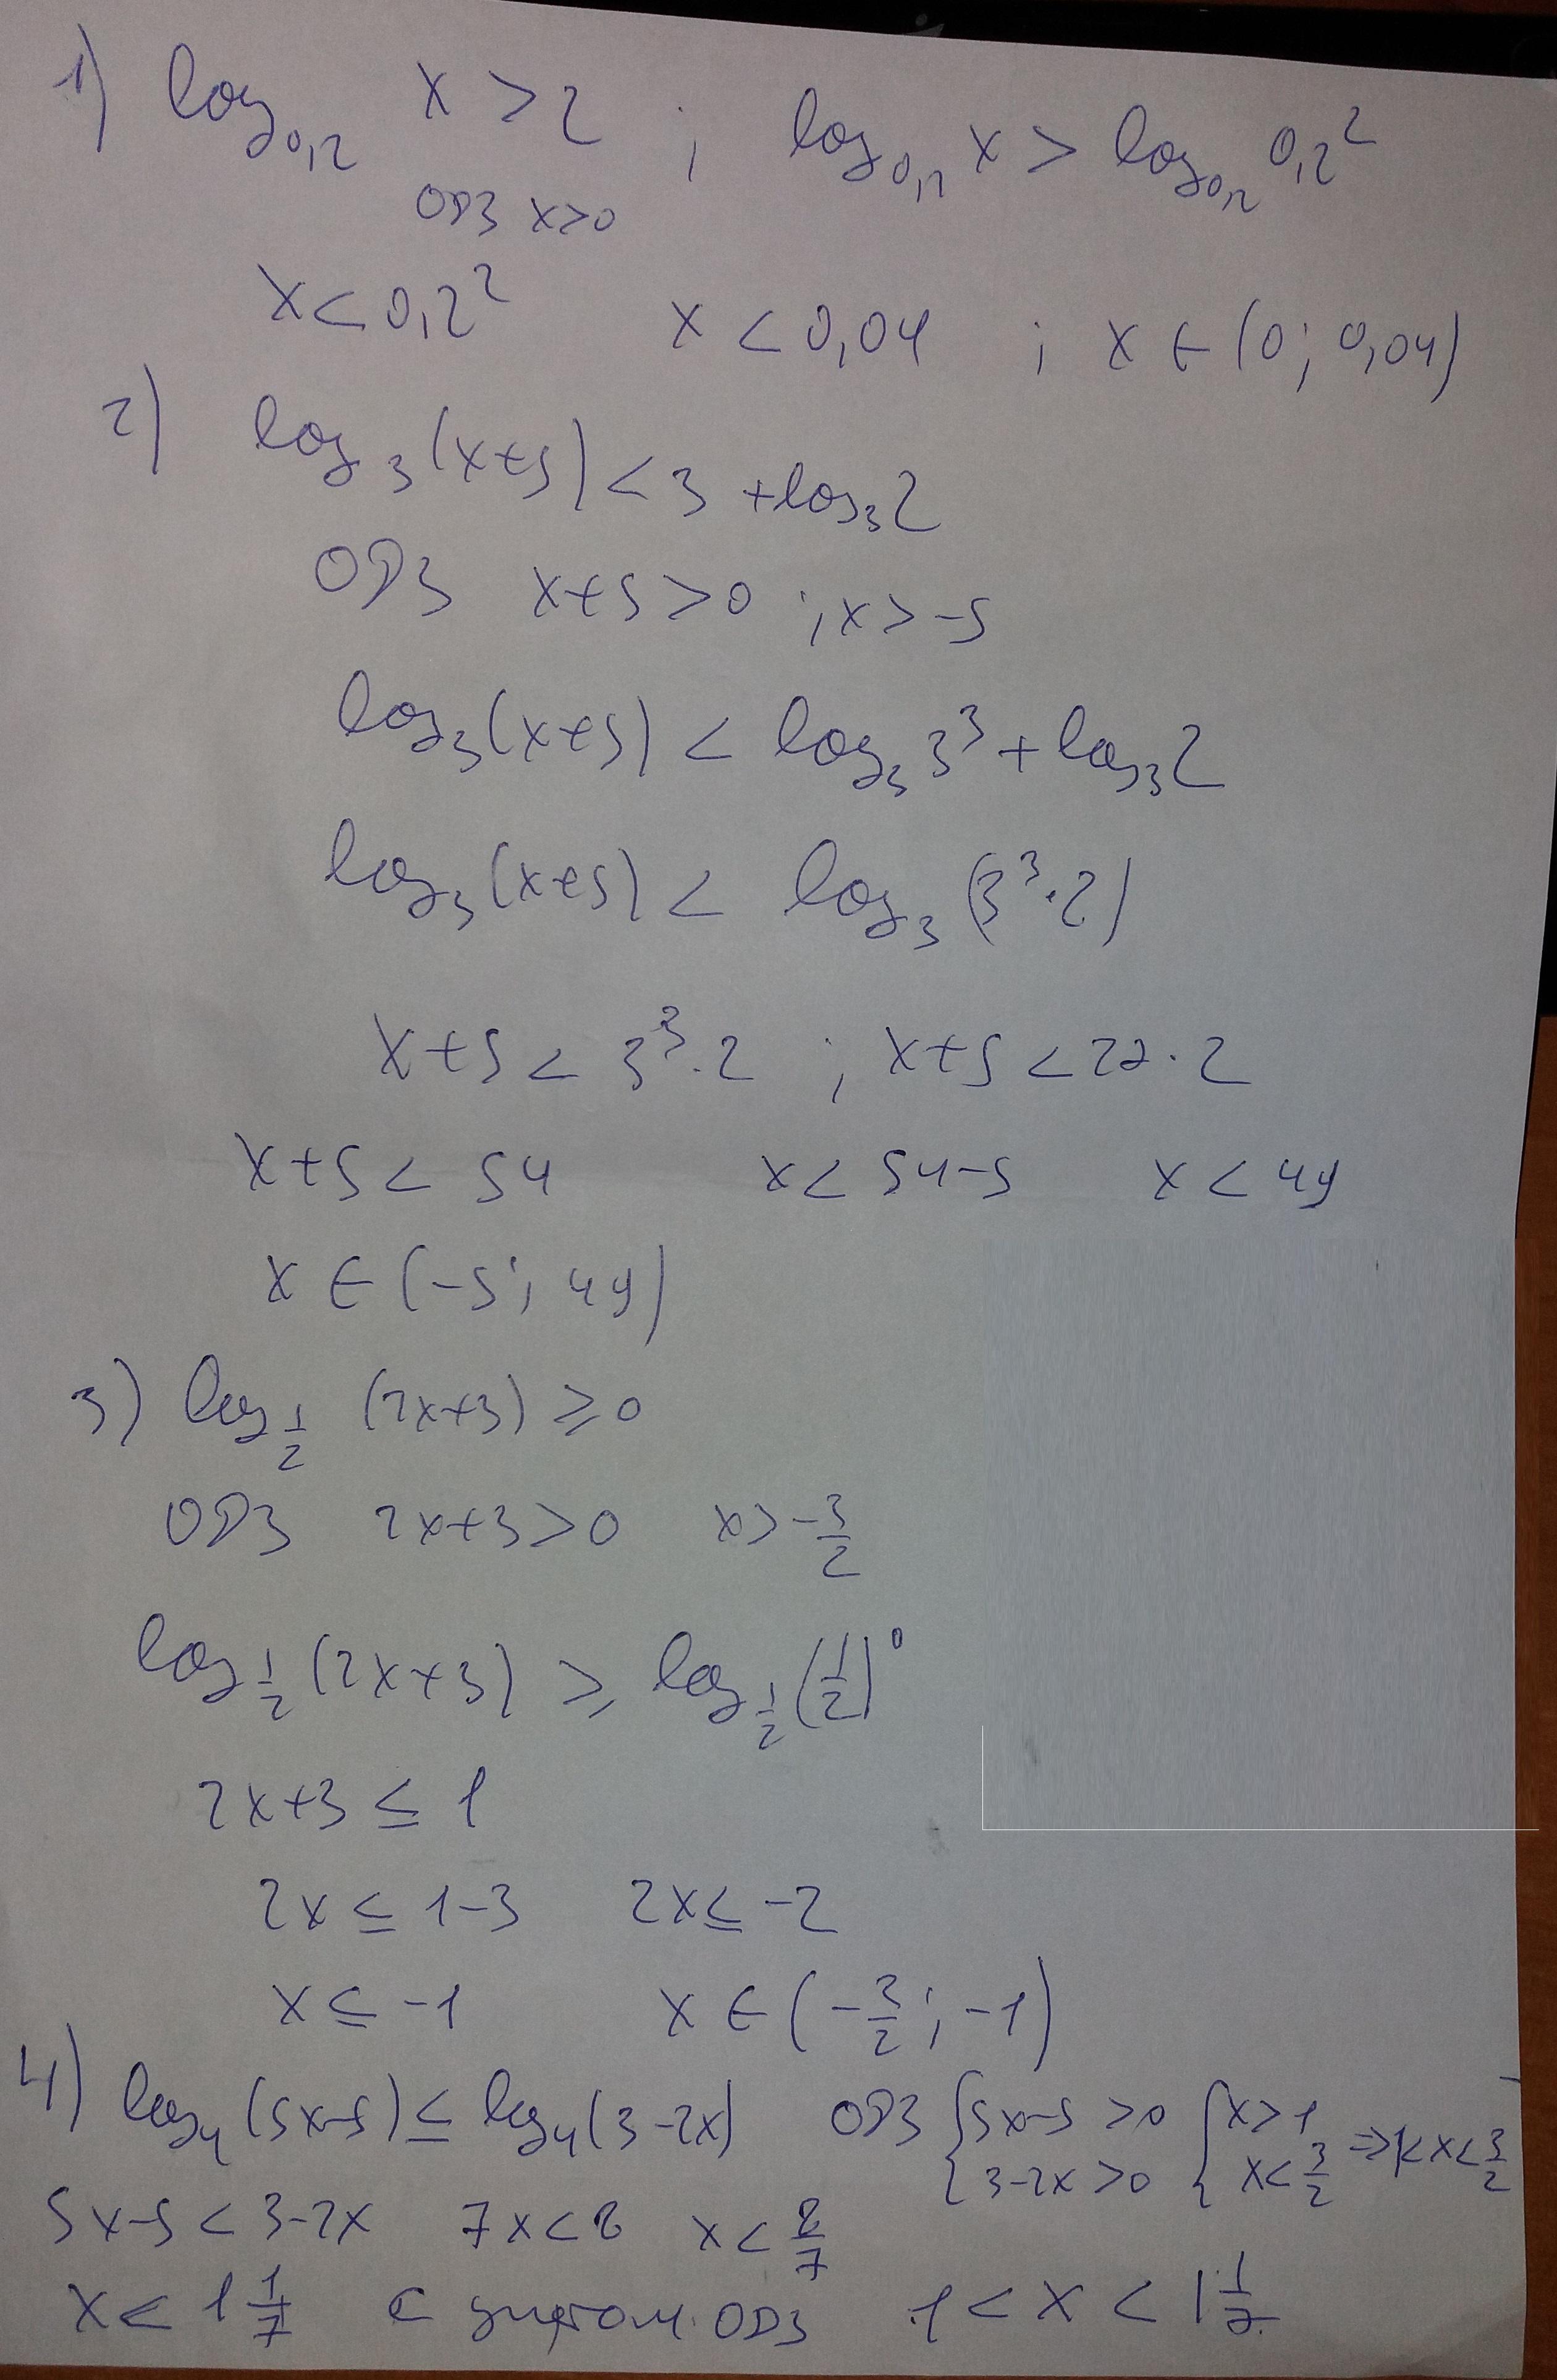 1) log₀,₂ x > 2 ; log₀,₂ x > log₀,₂ 0,2²
ОДЗ x>0
x < 0,2² x < 0,04 ; x ∈ (0; 0,04)
2) log₃(x+5) < 3 + log₃2
ОДЗ x+5 > 0 ; x > -5
log₃(x+5) < log₃3³ + log₃2
log₃(x+5) < log₃(3³·2)
x+5 < 3³·2 ; x+5 < 27·2
x+5 < 54 x < 54-5 x < 49
x ∈ (-5; 49)
3) log_{1/2} (2x+3) ≥ 0
ОДЗ 2x+3 > 0 x > -3/2
log_{1/2}(2x+3) ≥ log_{1/2}(1/2)⁰
2x+3 ≤ 1
2x ≤ 1-3 2x ≤ -2
x ≤ -1 x ∈ (-3/2; -1)
4) log₄(5x-5) ≤ log₄(3-2x) ОДЗ {5x-5 > 0 {x > 1
3-2x > 0 x < 3/2 ⇒ 1< x < 3/2
5x-5 < 3-2x 7x < 8 x < 8/7
x < 1 1/7 с учетом ОДЗ 1 < x < 1 1/7